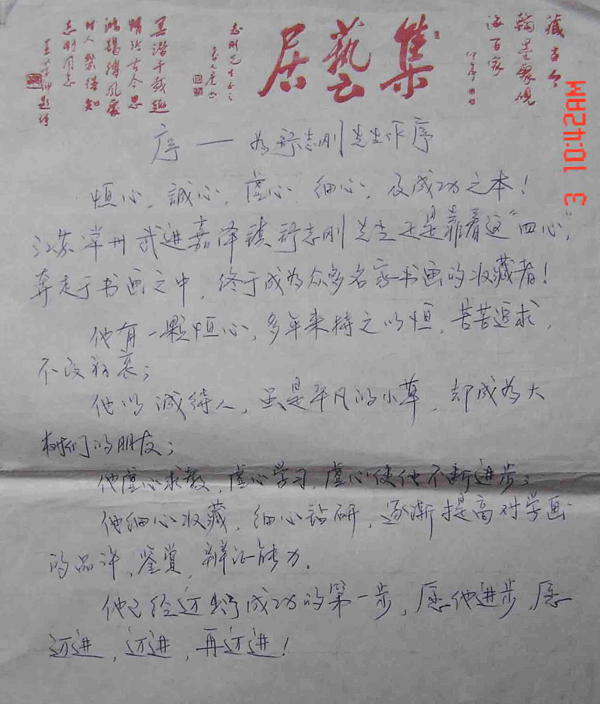 集藝居
藏古今
翰墨聚硯
志刚先生正之
志刚同志
序 — 为舒志刚先生作序
恒心，誠心，虚心，细心，及成功之本！
江苏常州武进嘉泽镇舒志刚先生正是靠着这“四心”，
奔走于书画之中，终于成为众多名家书画的收藏者！
他有一颗恒心，多年来持之以恒，苦苦追求，
不改初衷；
他以诚待人，虽是平凡的小草，却成为大
树们的朋友；
他虚心求教，虚心学习，虚心使他不断进步；
他细心收藏，细心钻研，逐渐提高对学画
的品评，鉴赏，辩证能力。
他已经迈出了成功的第一步，愿他进步，愿
迈进，迈进，再迈进！
3 10:42AM